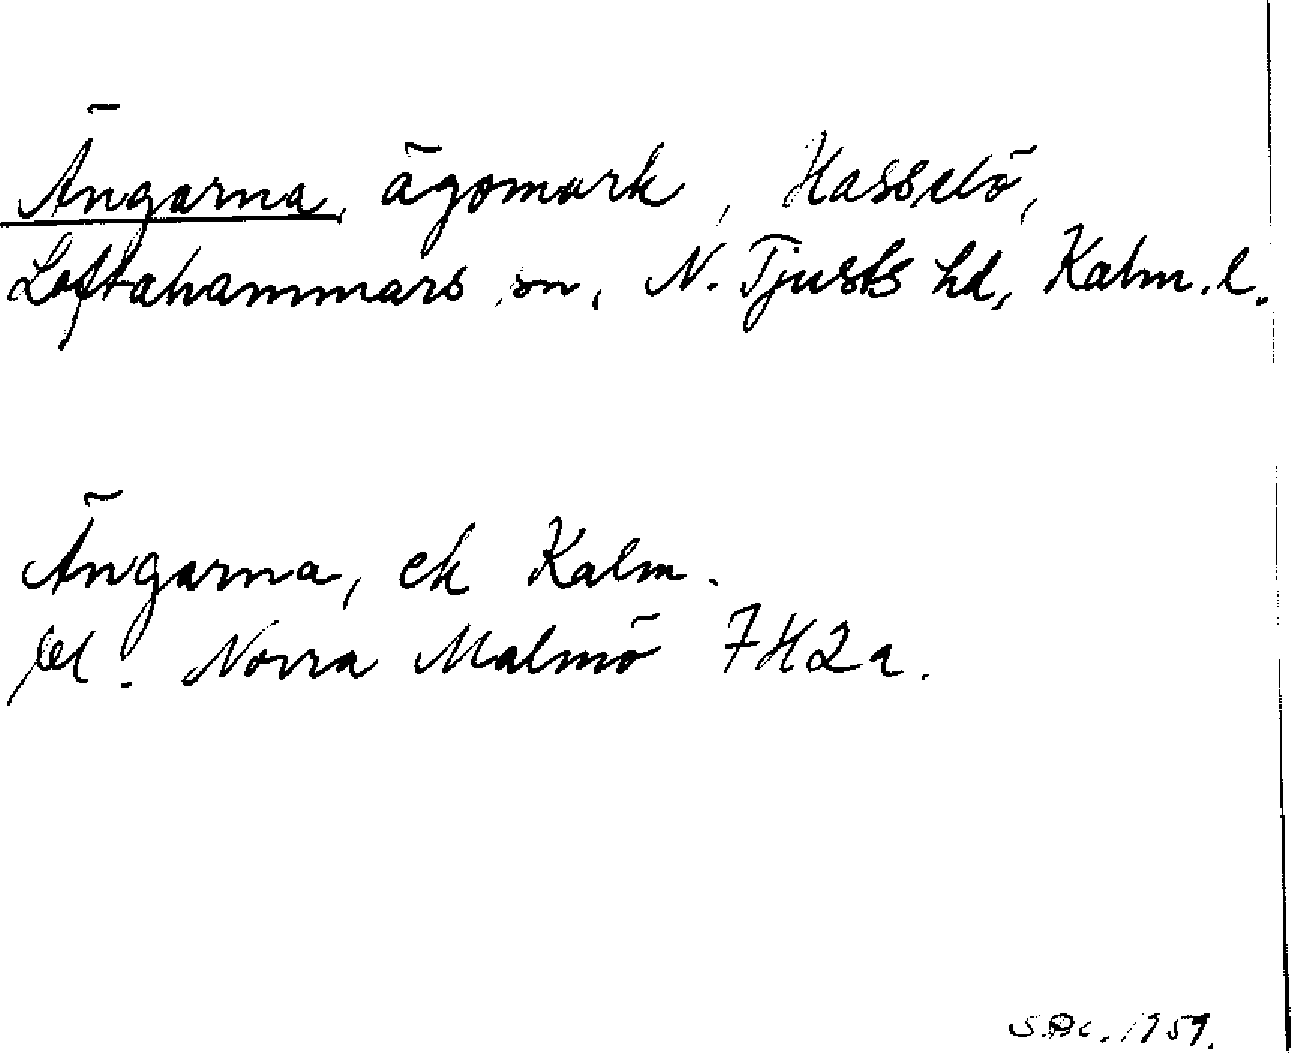 Ängarna, ägomark, Hasselö,
Loftahammars sn, N. Tjusts hd, Kalm. l.
Ängarna, ek Kalm.
bl. Norra Malmö 7H2a.